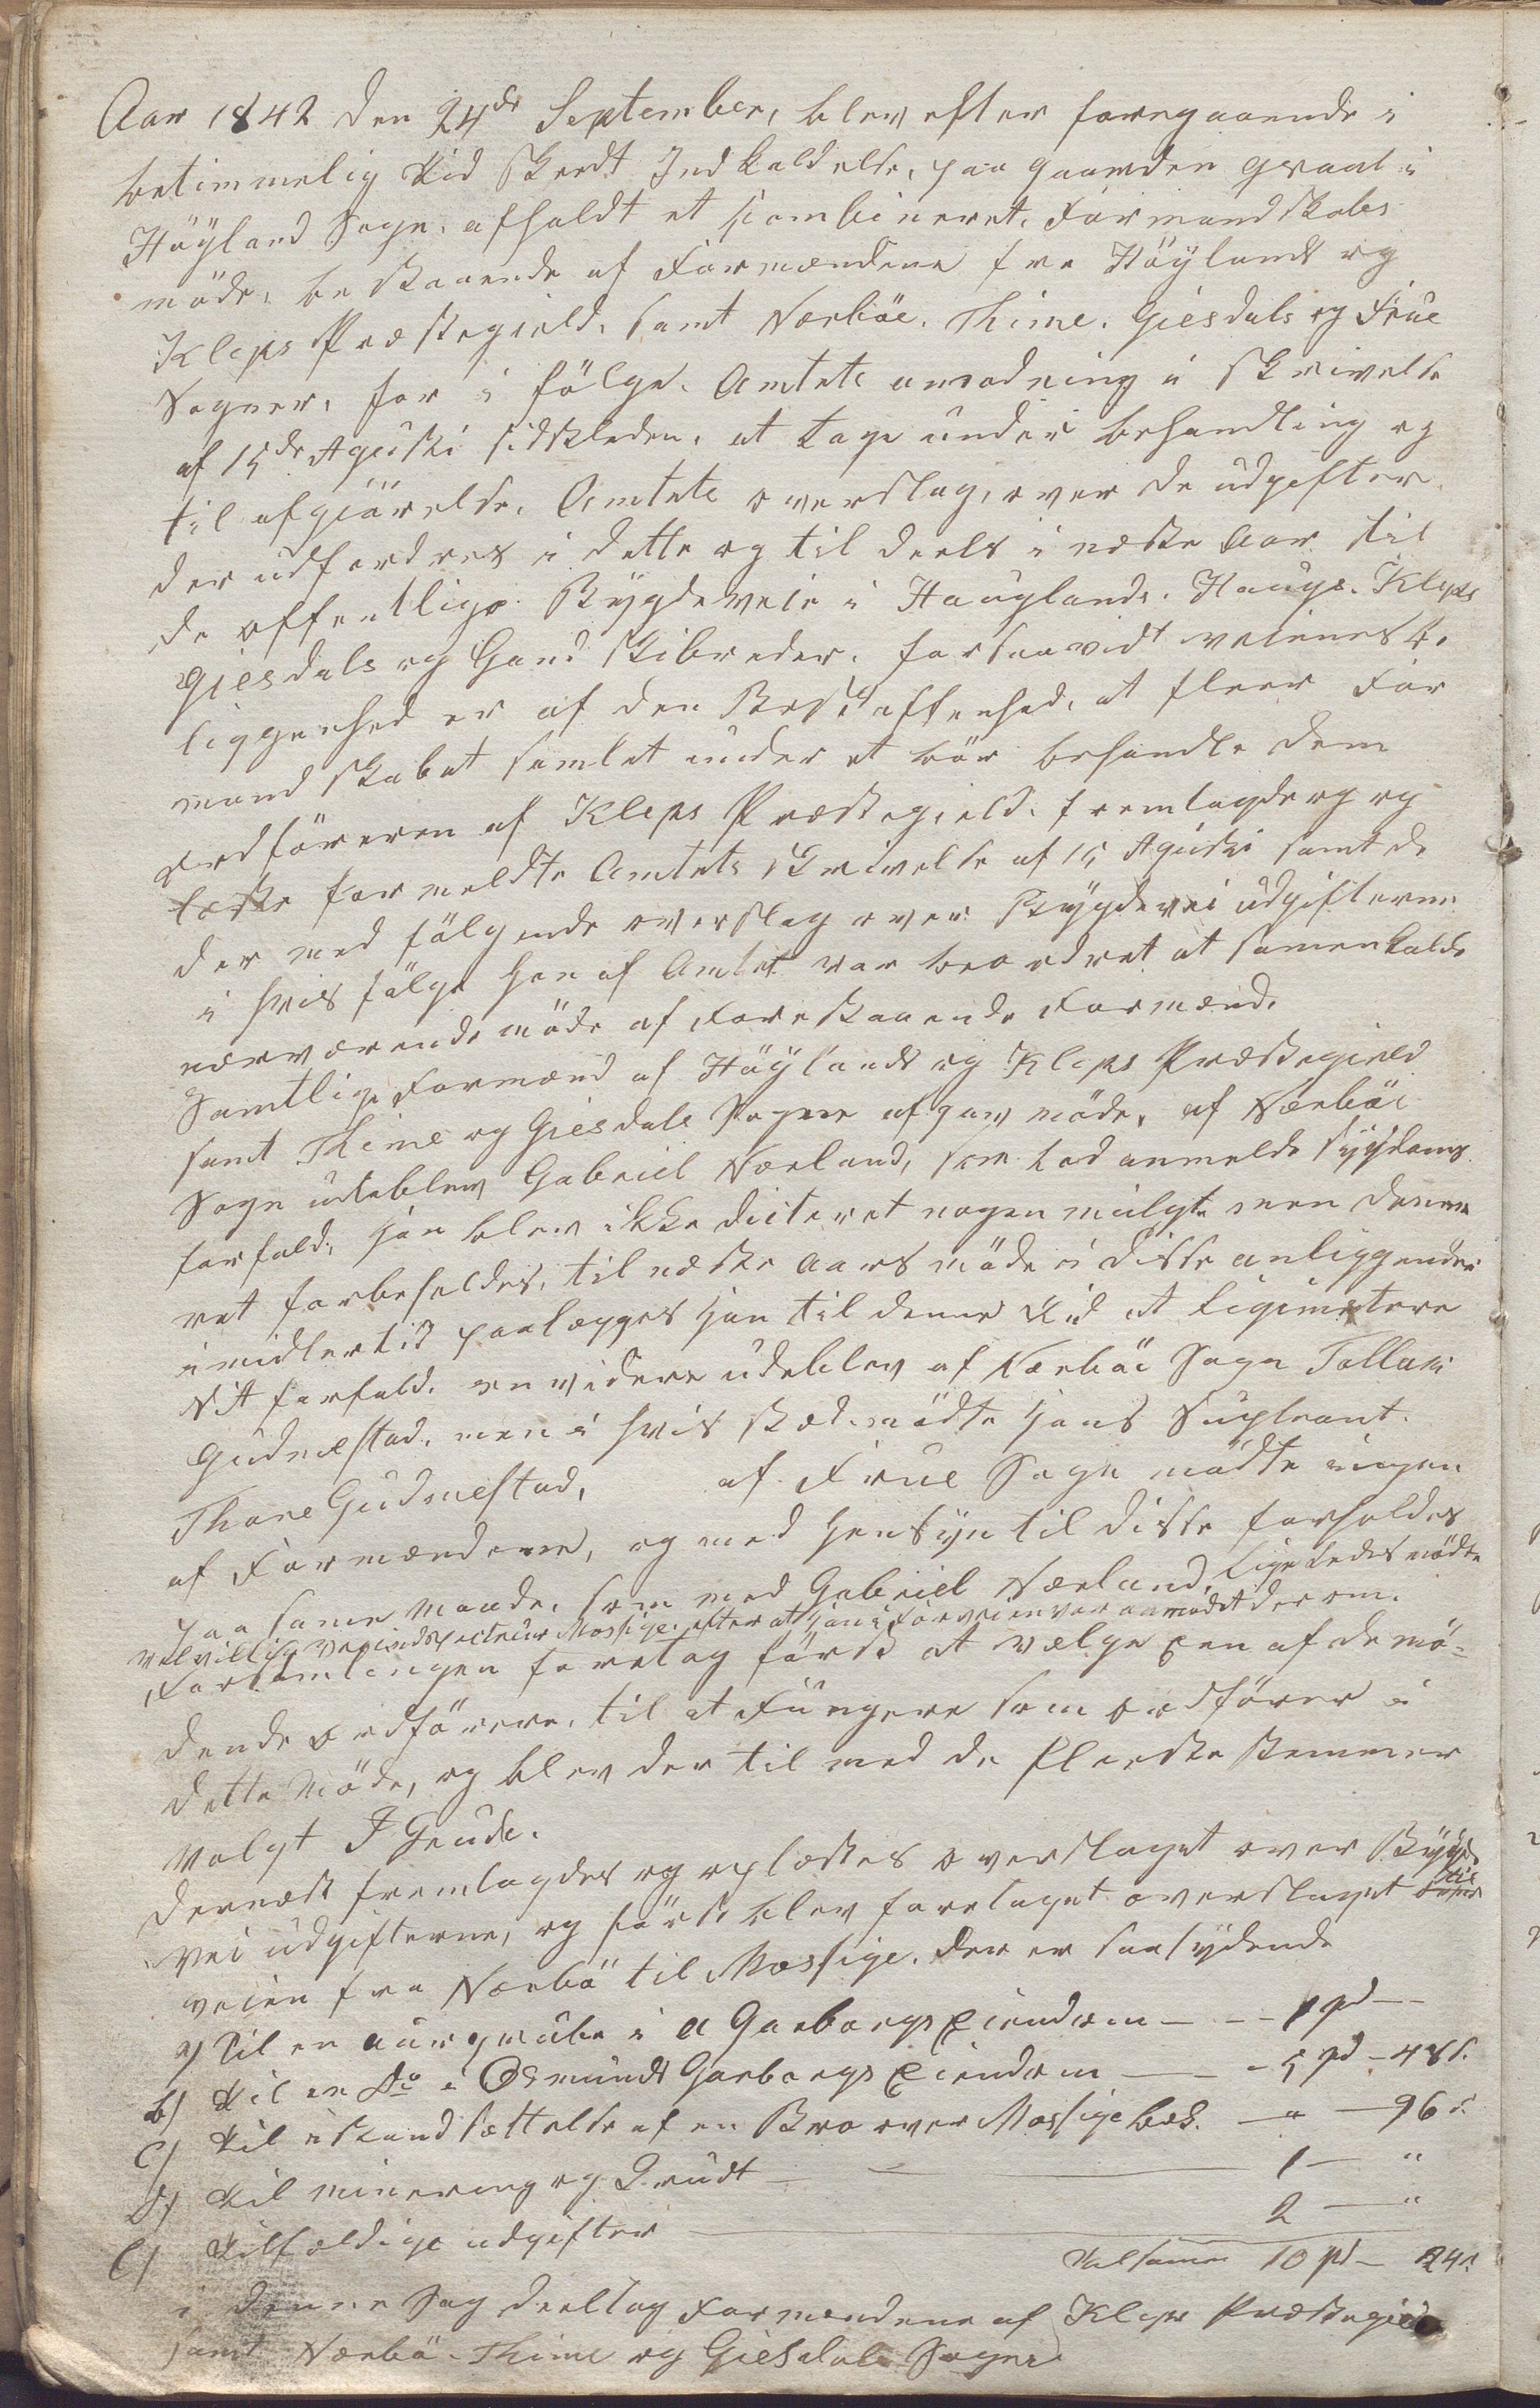 Aar 1842 den 24de September, blev efter foregaaende i
betimmelig Tid skeedt Indkaldelse, paa gaarden graal i
Höyland Sogn, afholdt et kombineret, Formandskabs
möde, bestaaende af Formændene fra Höylands og
Kleps Præstegield, samt Nærböe, Thime, Giesdals og Frue
Sogner, for i fölge, Amtets anmodning i skrivelse
af 15de Agusti sidstleden, at tage under behandling og
til afgiörelse, Amtets overslag, over de udgifter
der udfordres i dette og til deels i næste Aar til
de offentlige Bygdeveie i Hauglands, Haugs, Kleps
Giesdals og Gand Skibreder, forsaavidt veienes be
liggenhed er af den Beskaffenhed, at fleer For
mandskabet samlet under et bör behandle dem
ordföreren af Kleps Præstegield, fremlagde og op
læste formeldte Amtets skrivelse af 15 Agusti samt de
der med fölgende overslag over Bygdevei udgifterne
i hvis fölge han af Amtet var beordret at samenkalde
nærværende möde af Forestaaende Formænd.
Samtlige Formænd af Höylands og Kleps Præstegield
samt Thime og Giesdals Sogner afgav möde, af Nærböe
Sogn udeblev Gabriel Nærland, som lod anmelde sygdoms
forfald, han blev ikke dicteret nogen mulgt men denne
ret forbeholdes, til næste Aars möde i disse anliggender
imidlertid paalægges han til denne Tid at legimetere
sit forfald, envidere udeblev af Nærböe Sogn Tollak
Gudmestad, men i hvis sted mödte hans Supleant
Thore Gudmestad, af Frue Sogn mödte ingen
af Formændene, og med hensyn til disse forholdes
paa same Maade, som med Gabriel Nærland, Ligeledes mödte
velvillig veiindspecteur Mossige efter at han i Forveien var anmodet derom.
Forsamlingen foretog först at vælge Een af de mö-
dende ordförere, til at Fungere som ordförer i
dette Möde, og blev der til med de fleeste stemmer
Valgt J Grude.
Dernæst fremlagdes og oplæstes overslaget over Bygde
vei udgifterne, og först blev foretaget overslaget til
veien fra Nærbö til Mossige, der er saalydende
a) Til en aurgrube i A Garborgs Eiendom — — 1 pd —
b) Til en Do i Osmunds Garborgs Eiendom — — 5 pd – 48 s.
c) Til istandsættelse af en Bro over Mossige bek. — " — 96 s.
d) Til minering og Krudt — — 1 — "
e) Tilfældige udgifter — 2 — "
Tilsamen 10 pd — 24 s.
i denne Sag deeltog Formændene af Kleps Præstegield
samt Nærbö Thime og Giesdals Sogner